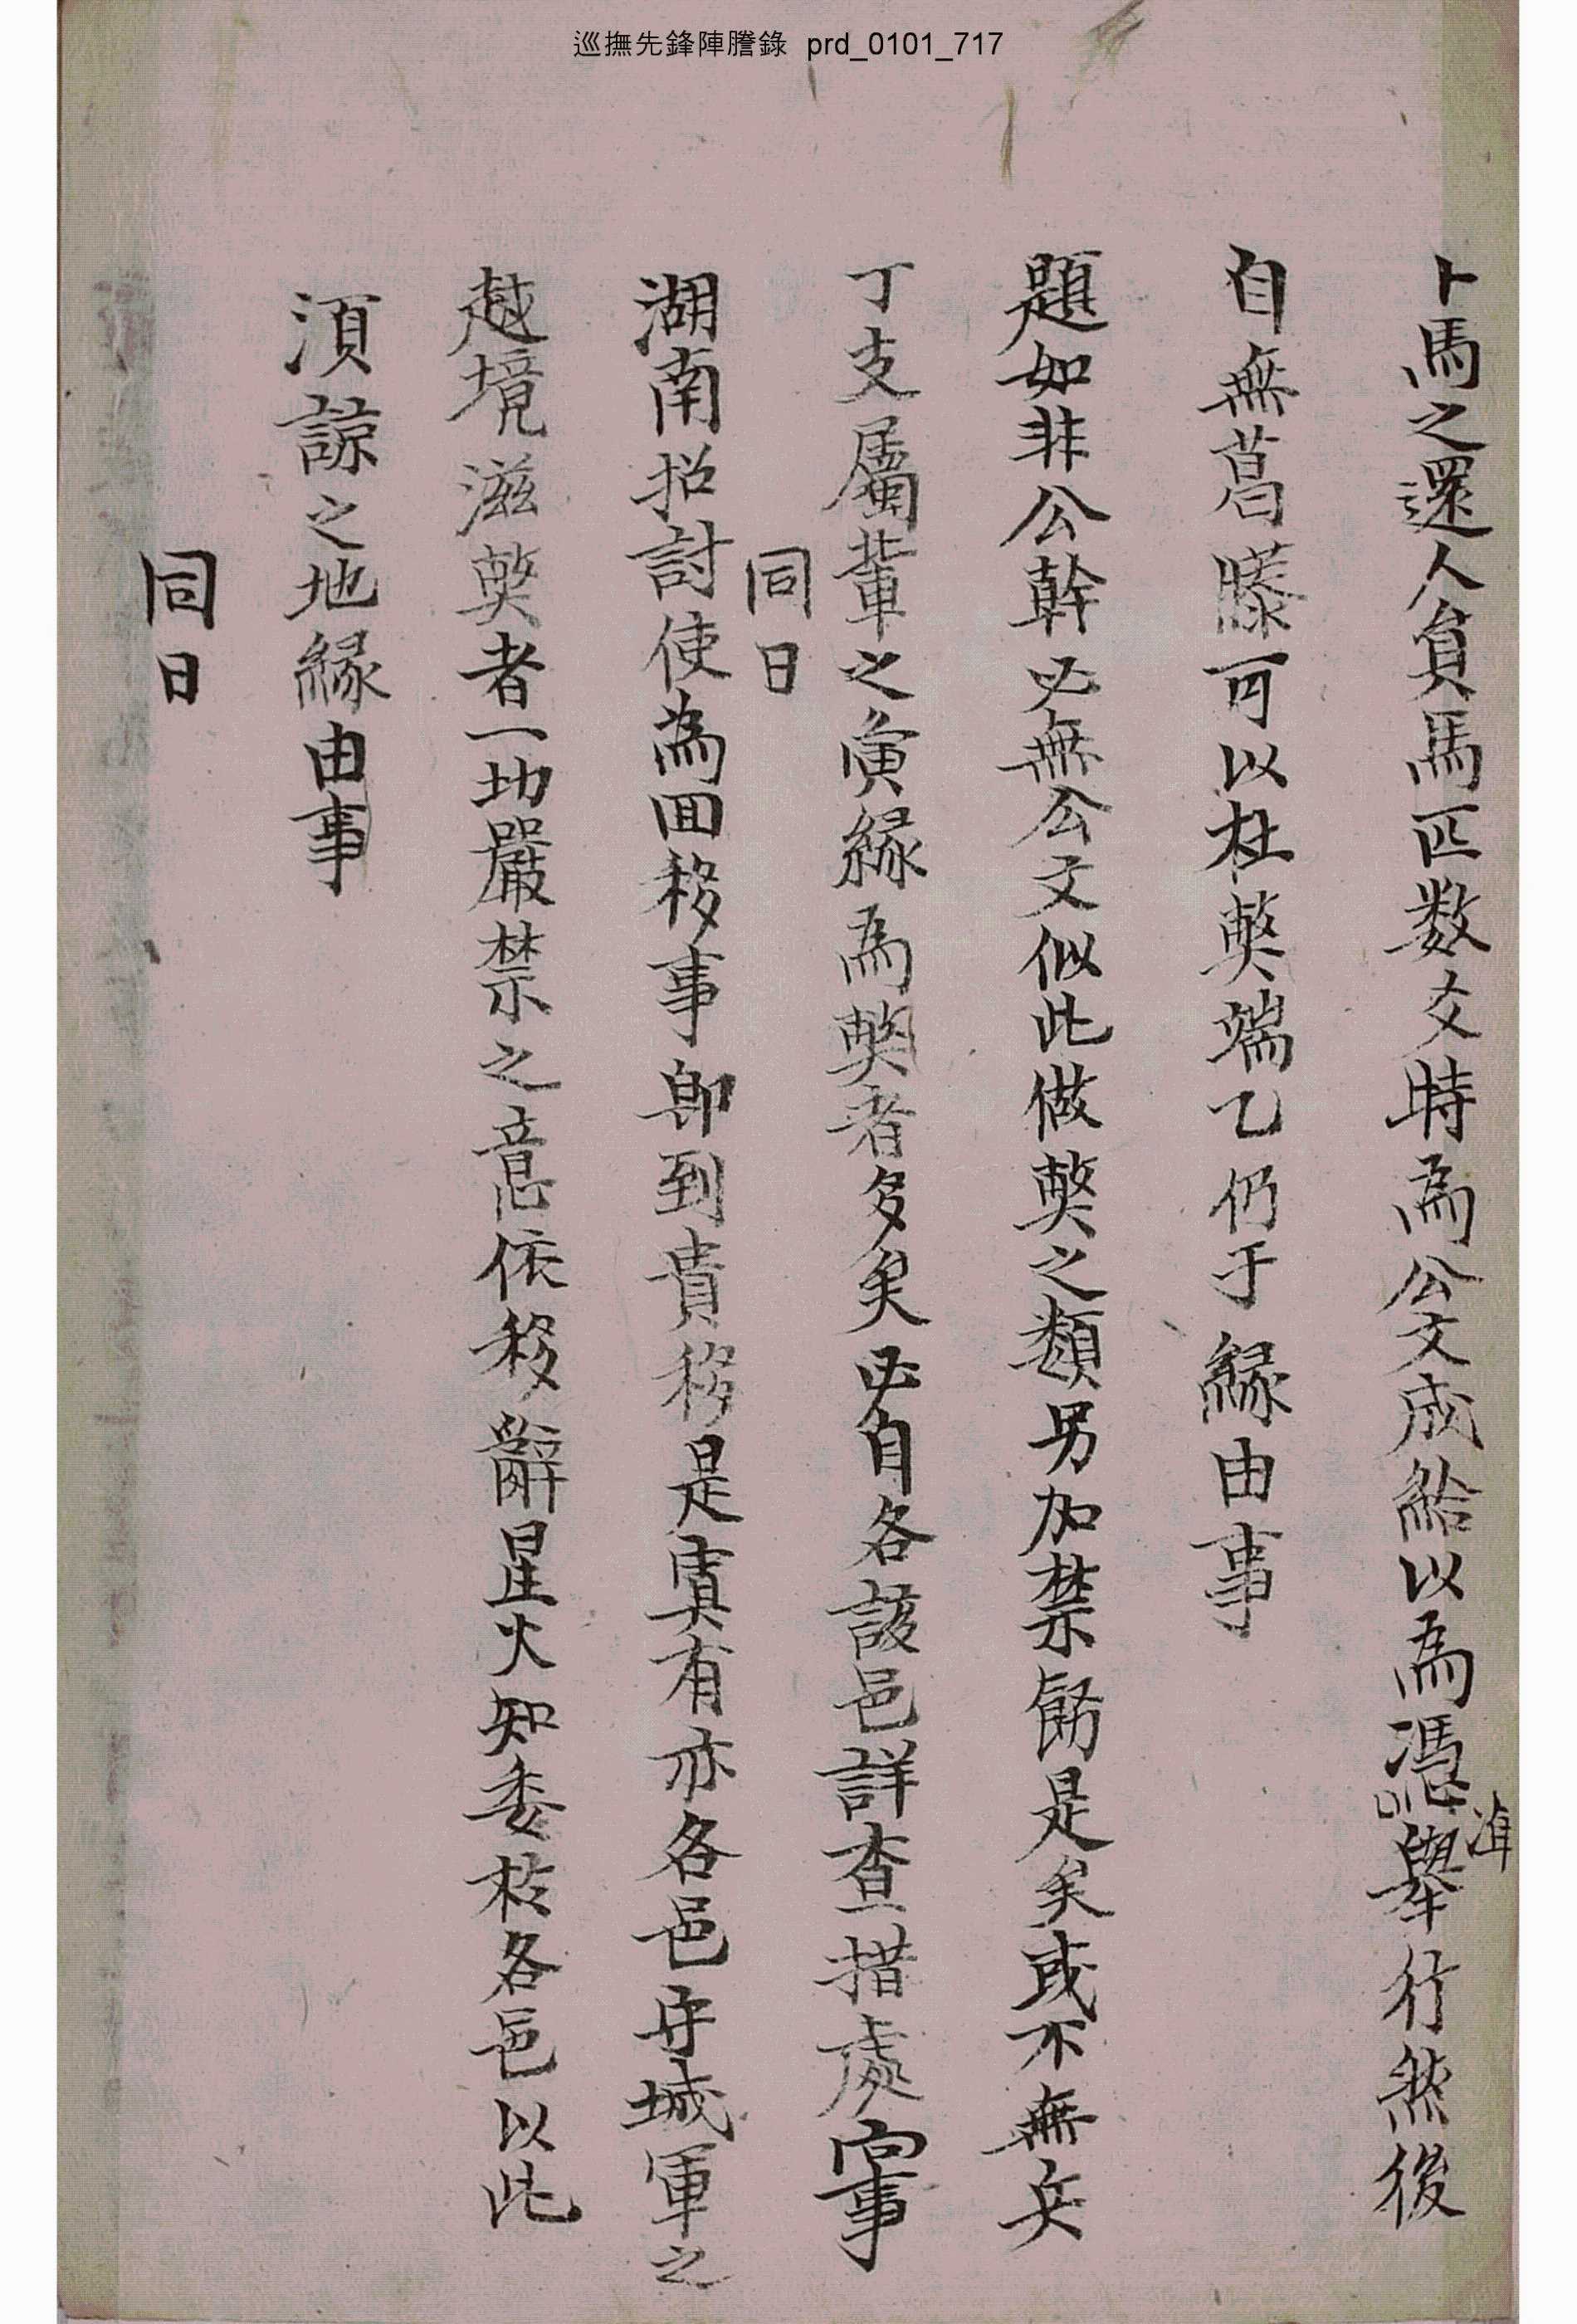 巡撫先鋒陣謄錄 prd_0101_717
卜馬之還人負馬匹数交時爲公文成給以爲憑準擧行然後
自無冒 可以杜弊端乙仍于緣由事
題如非公幹必無公文似此做弊之類另加禁飭是矣或不無兵
丁支屬輩之夤緣爲弊者多矣必自各該邑詳查措處向事
同日
湖南招討使為回移事卽到貴移是寘有亦各邑守城軍之
越境滋弊者一切嚴禁之意依移辭星火知委於各邑以此
須諒之地緣由事
同日